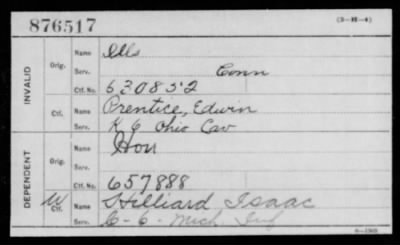 876517
(3-H-4)
INVALID
Orig.
Name Ills
Serv. Conn
Ctf. No. 630852
Ctf.
Name Prentice, Edwin
Serv. K 6 Ohio Cav
DEPENDENT
Orig.
Name Hou
Serv.
Ctf. No. 657888
W
Ctf.
Name Hilliard Isaac
Serv. C-6-Mich Inf